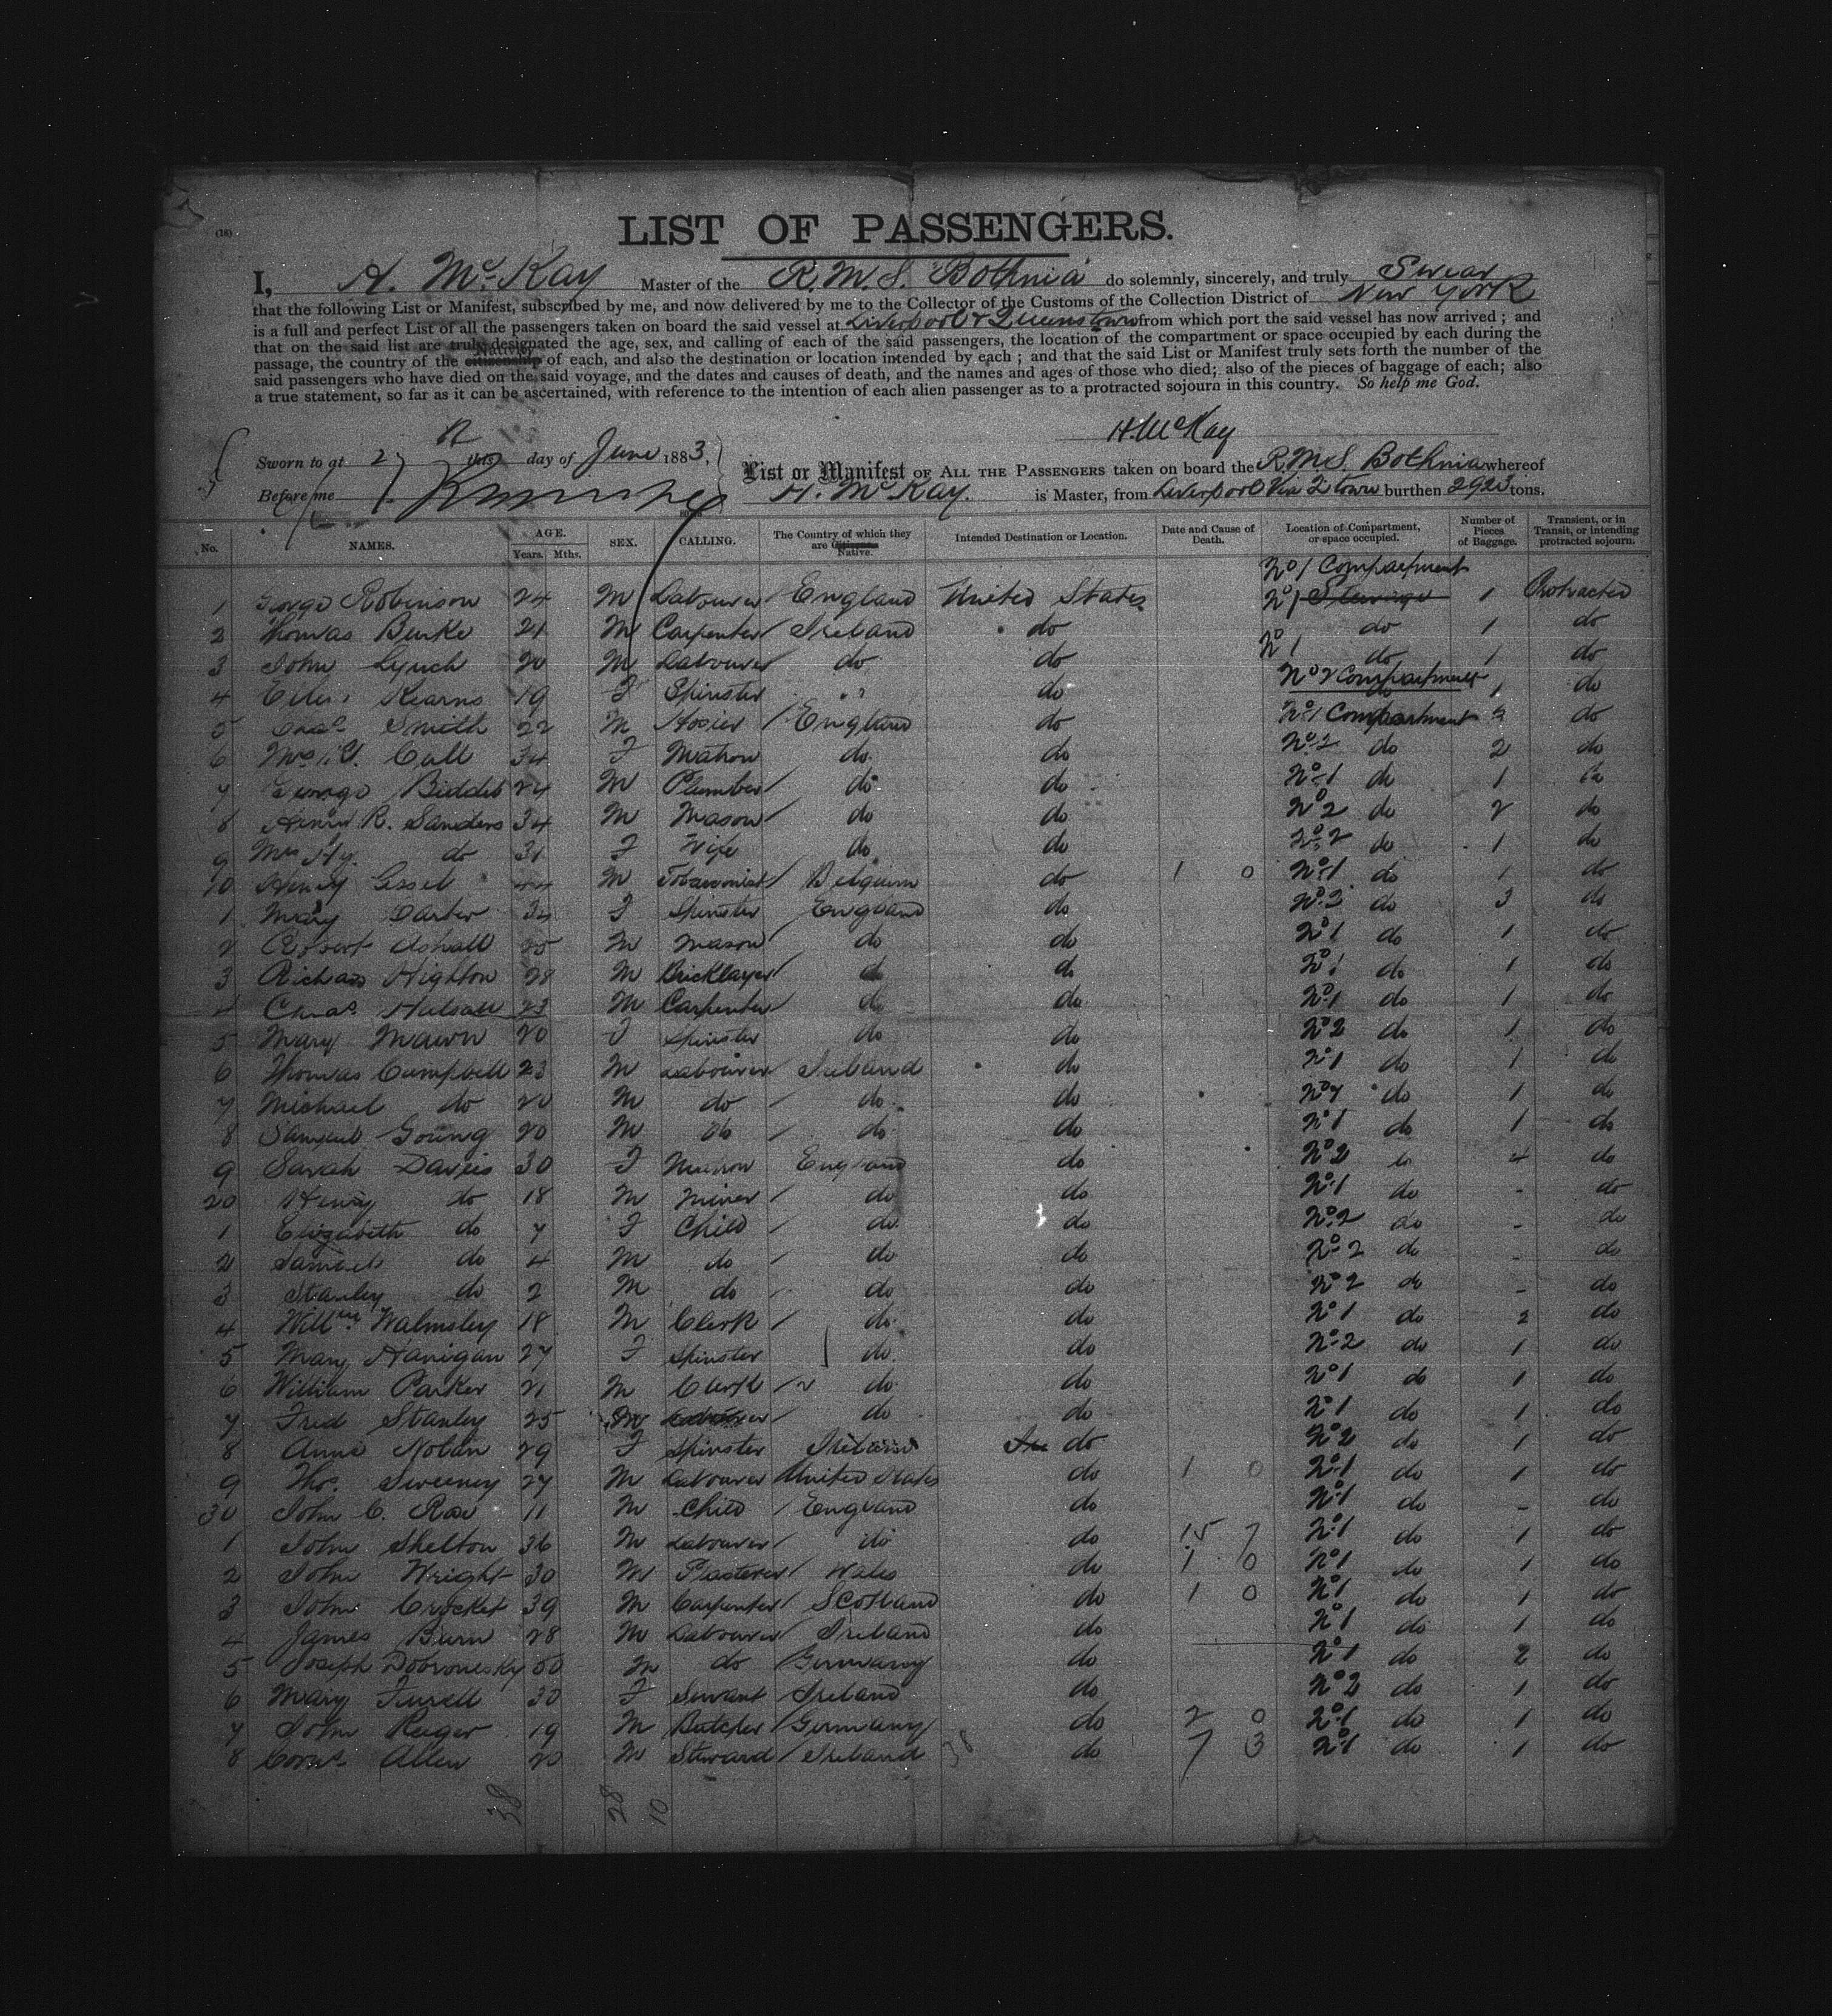 (16)
LIST OF PASSENGERS.
I, H. McKay Master of the R.M.S. Bothnia do solemnly, sincerely, and truly Swear
that the following List or Manifest, subscribed by me, and now delivered by me to the Collector of the Customs of the Collection District of New York
is a full and perfect List of all the passengers taken on board the said vessel at Liverpool & Queenstown from which port the said vessel has now arrived; and
that on the said list are truly designated the age, sex, and calling of each of the said passengers, the location of the compartment or space occupied by each during the
passage, the country of the citizenship Native of each, and also the destination or location intended by each; and that the said List or Manifest truly sets forth the number of the
said passengers who have died on the said voyage, and the dates and causes of death, and the names and ages of those who died; also of the pieces of baggage of each; also
a true statement, so far as it can be ascertained, with reference to the intention of each alien passenger as to a protracted sojourn in this country. So help me God.
H. McKay
Sworn to at 2 this day of June 1883,
List or Manifest OF ALL THE PASSENGERS taken on board the R.M.S. Bothnia whereof
Before me
H. McKay. is Master, from Liverpool Via Qtown burthen 2923 tons.
No. NAMES. AGE. Years. Mths. SEX. CALLING. The Country of which they are Citizens. Native. Intended Destination or Location. Date and Cause of Death. Location of Compartment, or space occupied. Number of Pieces of Baggage. Transient, or in Transit, or intending protracted sojourn.
No 1 Compartment
1 George Robinson 24 M Labourer England United States No 1 Steerage 1 Protracted
2 Thomas Burke 21 M Carpenter Ireland do do 1 do
3 John Lynch 20 M Labourer do do No 1 do 1 do
4 Kearns 19 F Spinster " do No 2 Compartment 1 do
5 Chas Smith 22 M Hosier England do No 1 Compartment 2 do
6 Mrs Call 34 F Matron do do No 2 do 2 do
7 George Biddis 24 M Plumber do do No 1 do 1 do
8 Henry R. Sanders 34 M Mason do do No 2 do 2 do
9 Mrs Hy. do 31 F Wife do do No 2 do 1 do
10 Henry Gessel 44 M Tobacconist Belguim do 1 0 No 1 do 1 do
1 Mary Carter 34 F Spinster England do No 3 do 3 do
2 Robert Ashall 25 M Mason do do No 1 do 1 do
3 Richard Highton 28 M Bricklayer do do No 1 do 1 do
4 Chas Halsall 23 M Carpenter do do No 1 do 1 do
5 Mary Mawn 20 F Spinster do do No 2 do 1 do
6 Thomas Campbell 23 M Labourer Ireland do No 1 do 1 do
7 Michael do 20 M do do do do 1 do
8 Samuel Young 20 M do do do No 1 do 1 do
9 Sarah Davies 30 F Matron England do No 2 do 4 do
20 Henry do 18 M Miner do do No 1 do - do
1 Elizabeth do 7 F Child do do No 2 do - do
2 Samuel do 4 M do do do No 2 do - do
3 Stanley do 2 M do do do No 2 do - do
4 Willm Walmsley 18 M Clerk do do No 1 do 2 do
5 Mary Hanigan 27 F Spinster do do No 2 do 1 do
6 William Parker 21 M Clerk do do No 1 do 1 do
7 Fred Stanley 25 M Labourer do do No 1 do 1 do
8 Anne Nolan 29 F Spinster Ireland do No 2 do 1 do
9 Thos. Sweeney 27 M Labourer United States do 1 0 No 1 do 1 do
30 John C. Rae 11 M Child England do No 1 do - do
1 John Shelton 36 M Labourer do do 15 7 No 1 do 1 do
2 John Wright 30 M Plasterer Wales do 1 0 No 1 do 1 do
3 John Crocket 39 M Carpenter Scotland do 1 0 No 1 do 1 do
4 James Burn 28 M Labourer Ireland do No 1 do 1 do
5 Joseph Dobronesky 50 M do Germany do No 1 do 2 do
6 Mary Farrell 30 F Servant Ireland do No 2 do 1 do
7 John Reiger 19 M Butcher Germany do 2 0 No 1 do 1 do
8 Corns Allen 20 M Steward Ireland 38 do 7 3 No 1 do 1 do
38 28 10